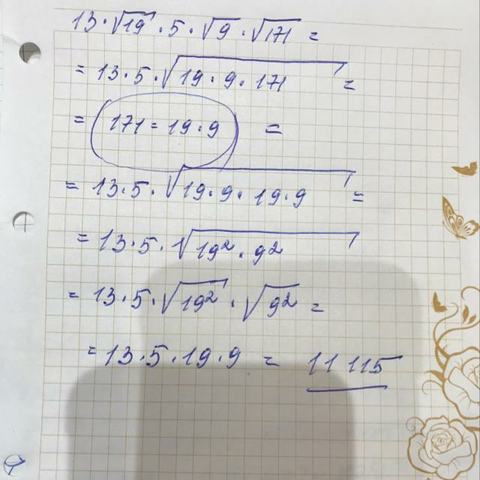 13·√19·5·√9·√171 =
= 13·5·√19·9·171 =
= (171 = 19·9) =
= 13·5·√19·9·19·9 =
= 13·5·√19²·9²
= 13·5·√19²·√9² =
= 13·5·19·9 = 11 115